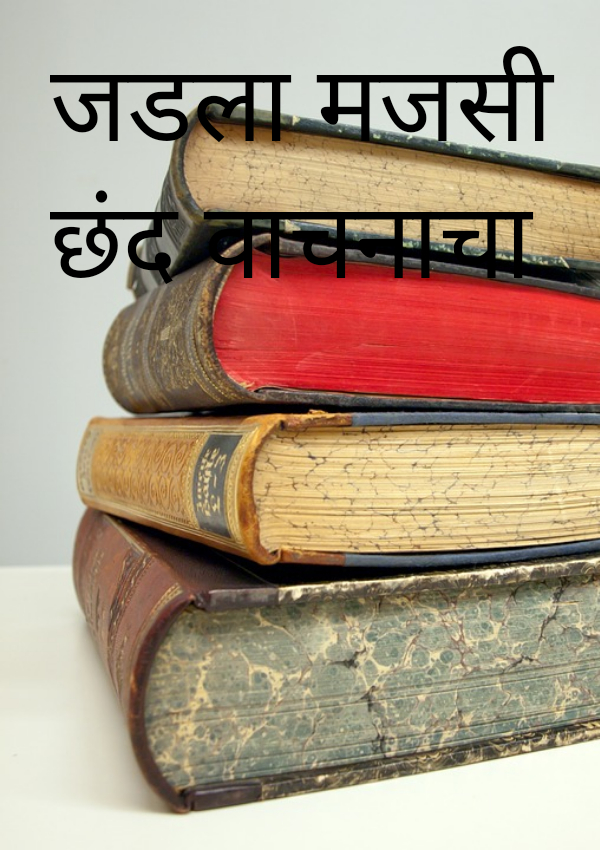 जडला मजसी
छंद वाचनाचा